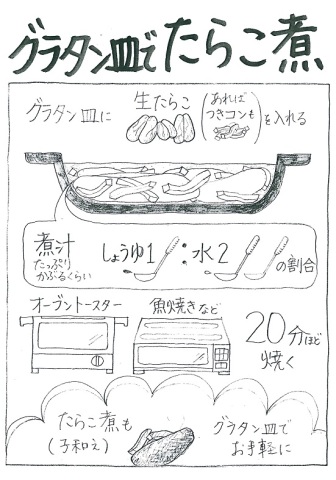 グラタン皿でたらこ煮
グラタン皿に 生たらこ (あれば つきコンも) を入れる
煮汁 たっぷり かぶるくらい
しょうゆ1 : 水2 の割合
オーブントースター 魚焼きなど
20分ほど
焼く
たらこ煮も
(子和え)
グラタン皿で
お手軽に